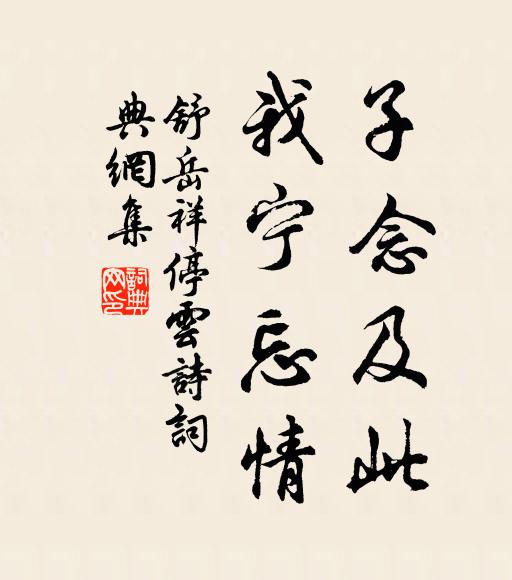 子念及此
我宁忘情
舒岳祥停雲詩詞
典網集
詞典網印